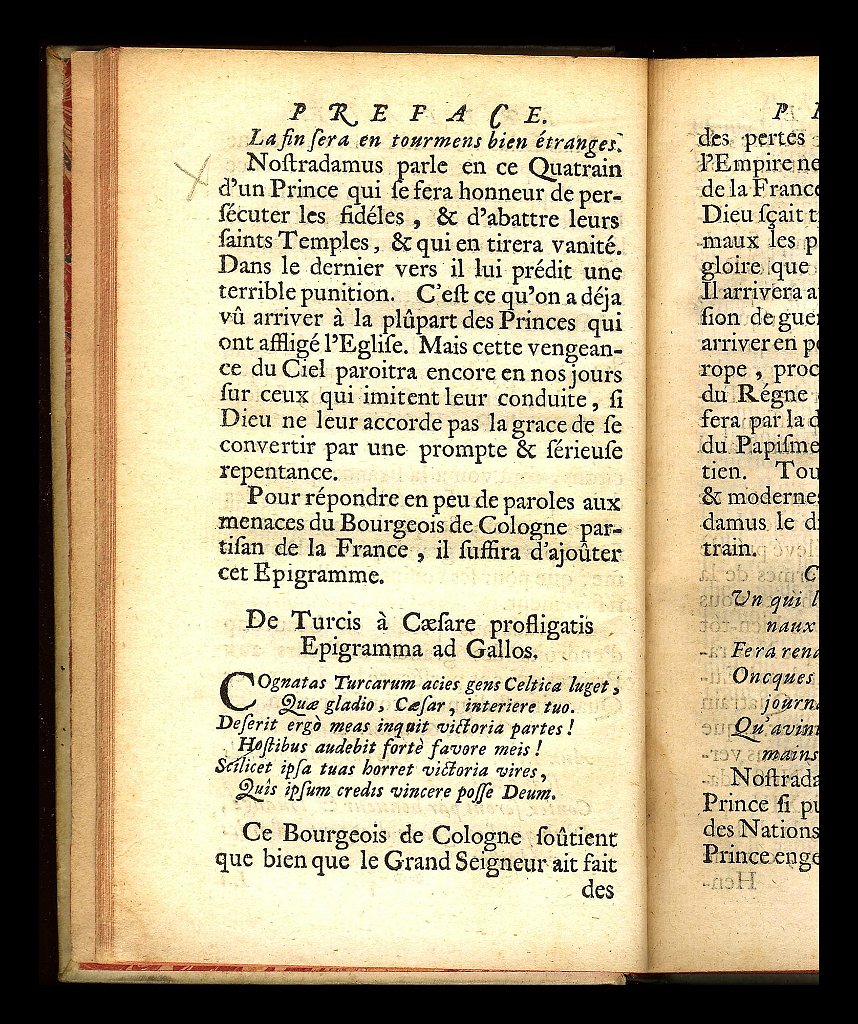 PREFACE.
La fin ſera en tourmens bien étranges.
Noſtradamus parle en ce Quatrain
d'un Prince qui ſe fera honneur de per-
ſécuter les fidéles, & d'abattre leurs
ſaints Temples, & qui en tirera vanité.
Dans le dernier vers il lui prédit une
terrible punition. C'eſt ce qu'on a déja
vû arriver à la plûpart des Princes qui
ont affligé l'Egliſe. Mais cette vengean-
ce du Ciel paroitra encore en nos jours
ſur ceux qui imitent leur conduite, ſi
Dieu ne leur accorde pas la grace de ſe
convertir par une prompte & ſérieuſe
repentance.
Pour répondre en peu de paroles aux
menaces du Bourgeois de Cologne par-
tiſan de la France, il ſuffira d'ajoûter
cet Epigramme.
De Turcis à Cæſare profligatis
Epigramma ad Gallos.
COgnatas Turcarum acies gens Celtica luget,
Quæ gladio, Cæſar, interiere tuo.
Deſerit ergò meas inquit victoria partes!
Hoſtibus audebit fortè favore meis!
Scilicet ipſa tuas horret victoria vires,
Quîs ipſum credis vincere poſſe Deum.
Ce Bourgeois de Cologne ſoûtient
que bien que le Grand Seigneur ait fait
des
P
des pertes
l'Empire ne
de la France
Dieu ſçait t
maux les p
gloire que
Il arrivera a
ſion de gue
arriver en p
rope, proc
du Régne
fera par la d
du Papiſme
tien. Tou
& modernes
damus le d
train.
C
Un qui l
naux
Fera rend
Oncques
journ
Qu'avin
mains
Noſtrada
Prince ſi pu
des Nations
Prince enge